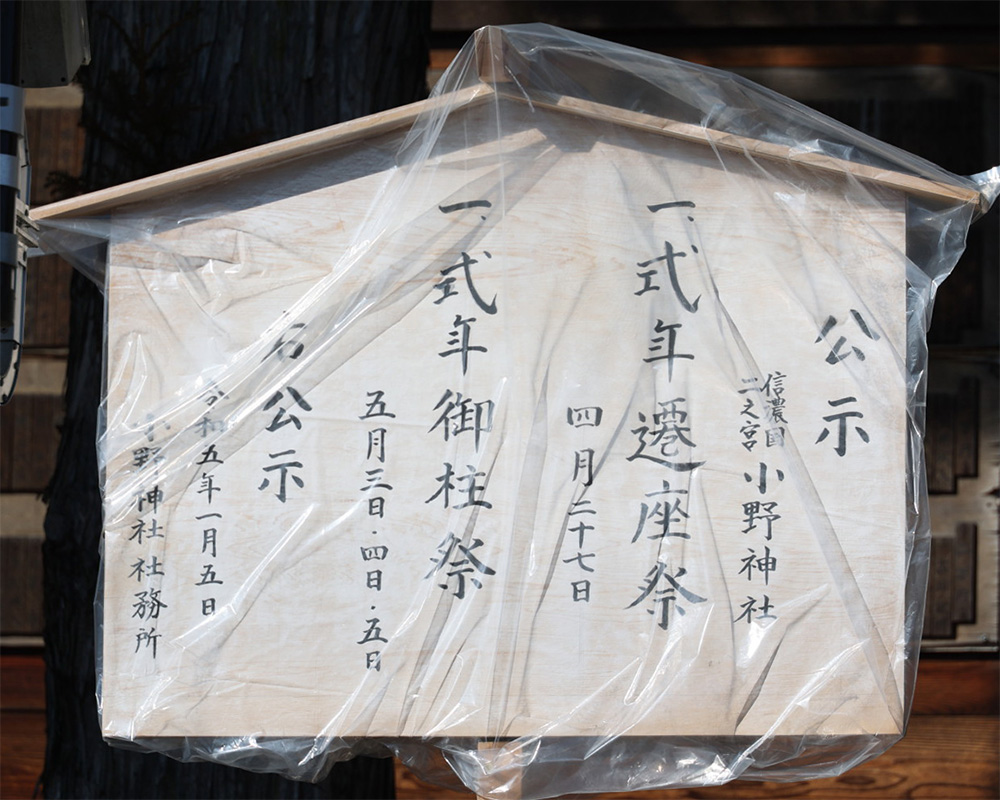 公示
信濃国
二之宮
小野神社
一、式年遷座祭
四月二十七日
一、式年御柱祭
五月三日・四日・五日
右公示
令和五年一月五日
小野神社社務所